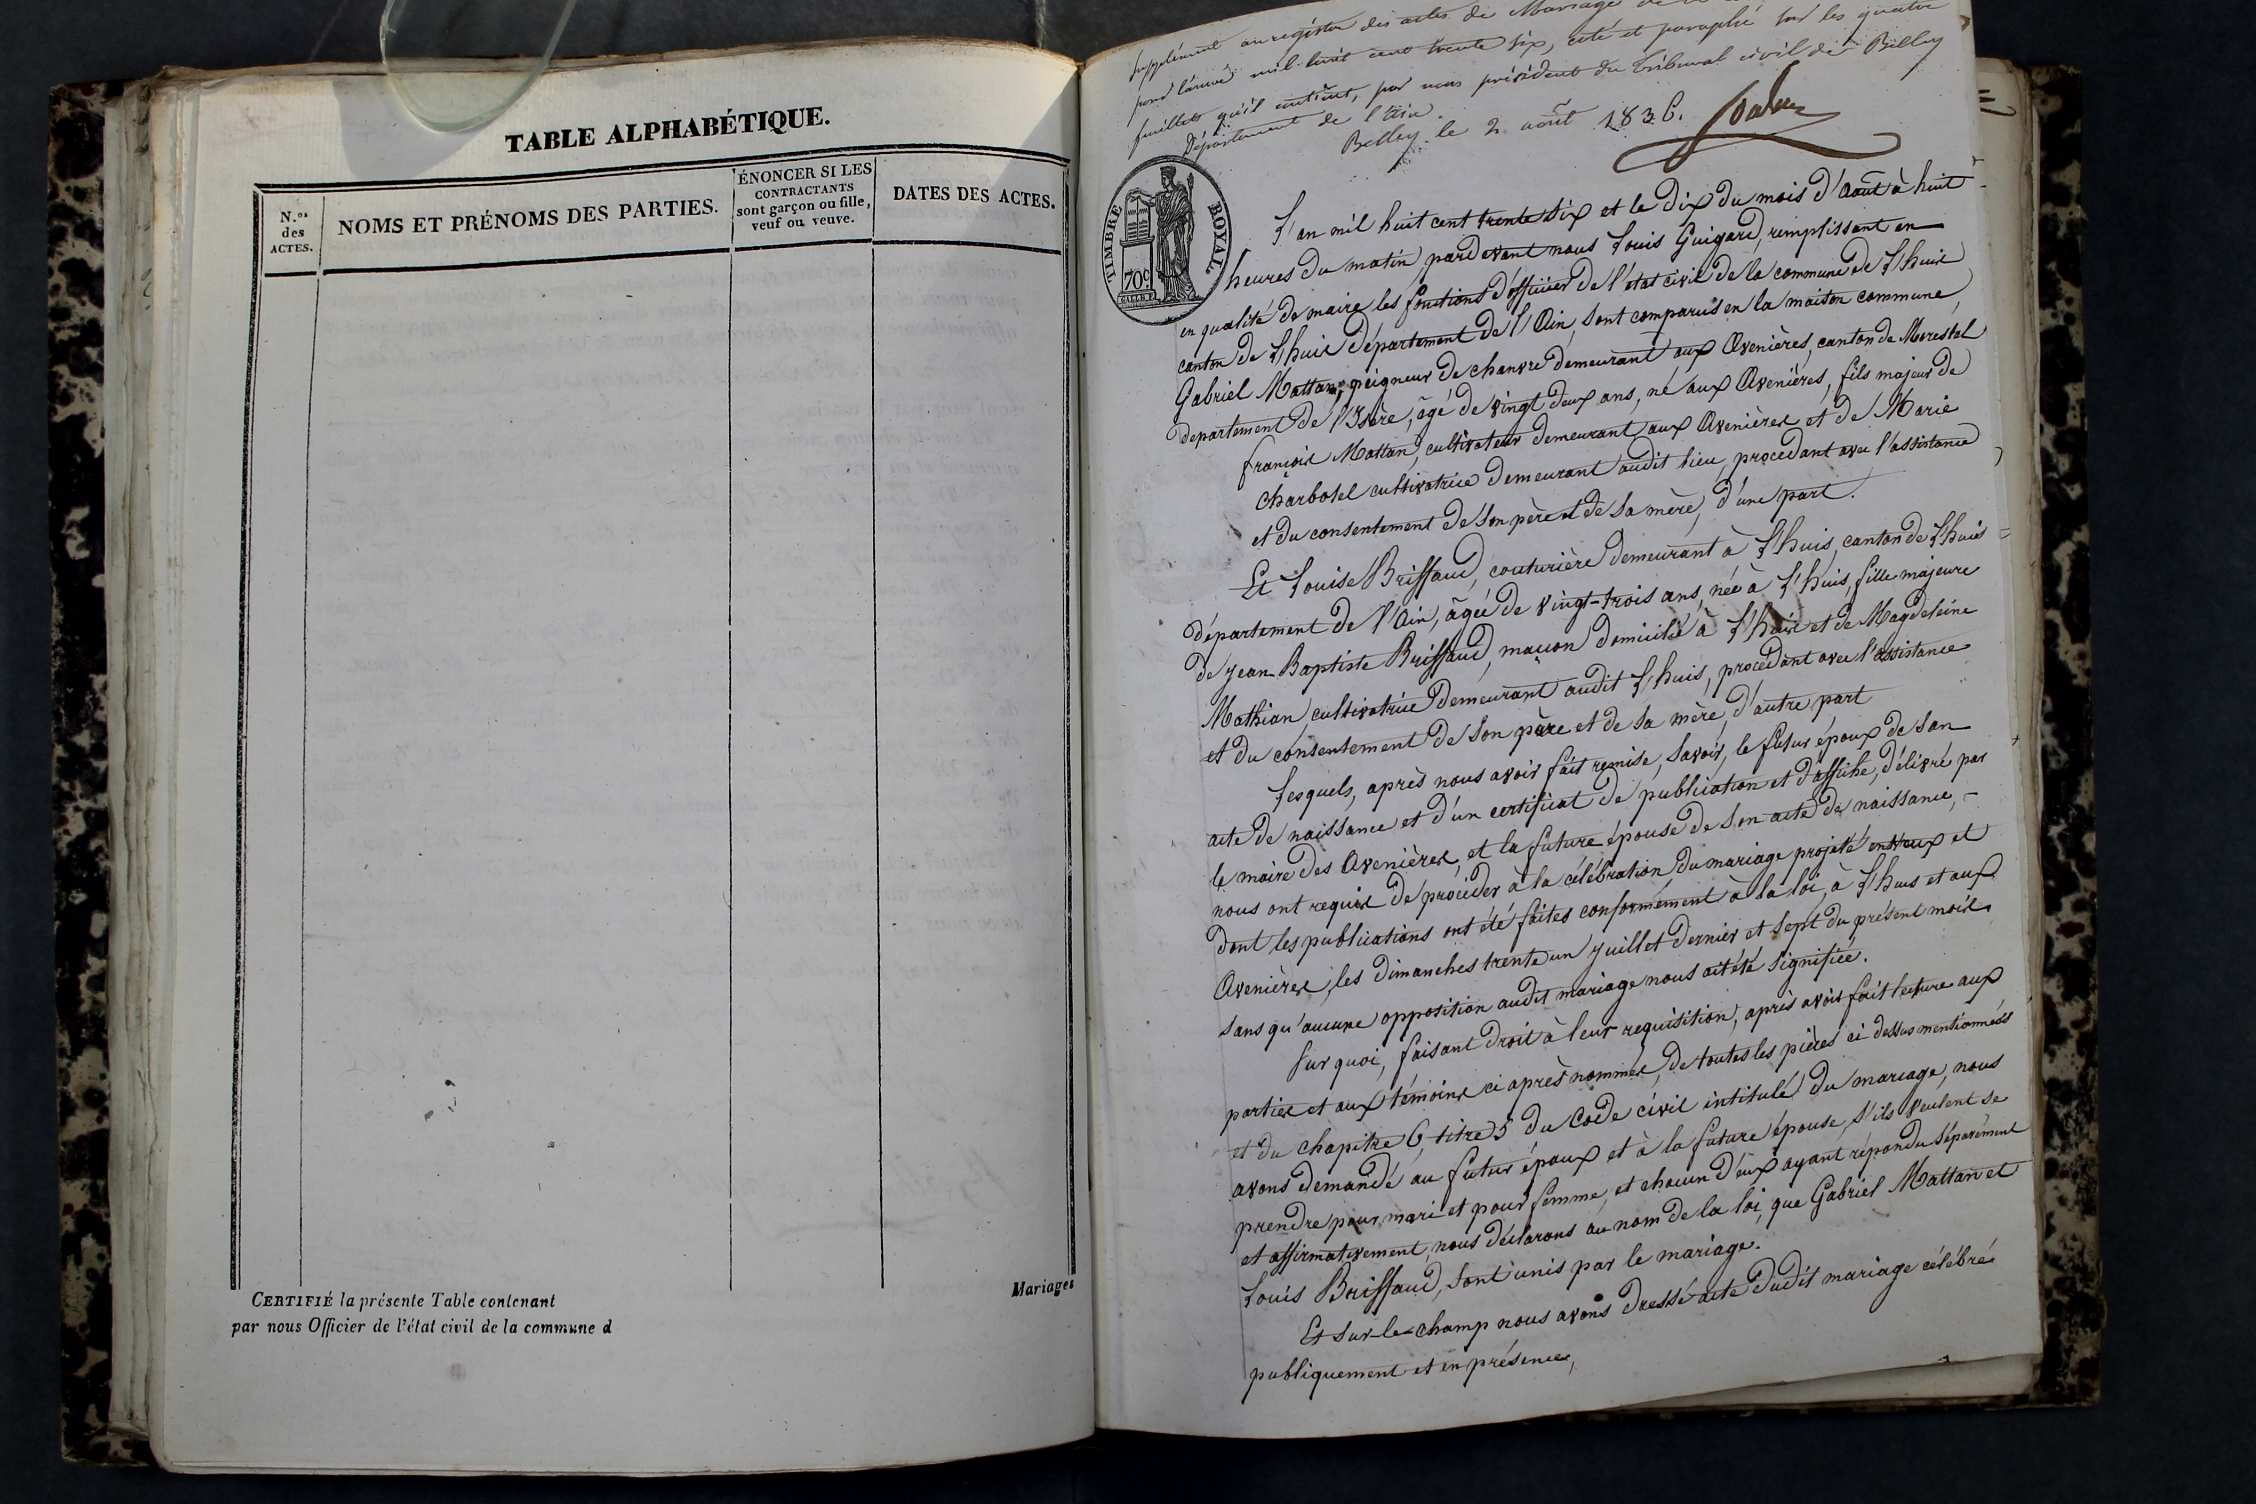 TABLE ALPHABÉTIQUE.
N.os
des
ACTES.
NOMS ET PRÉNOMS DES PARTIES.
ÉNONCER SI LES
CONTRACTANTS
sont garçon ou fille,
veuf ou veuve.
DATES DES ACTES.
CERTIFIÉ la présente Table contenant
par nous Officier de l'état civil de la commune d
Mariages
Supplément au régistre des actes de Mariage de
pour l'année mil huit cent trente six, coté et paraphé sur les quatre
feuillets qu'il contient, par nous président du tribunal civil de Belley
Département de l'Ain.
Belley le 2 août 1836.
TIMBRE
ROYAL
70c
L'an mil huit cent trente six et le dix du mois d'Aout à huit
heures du matin pardevant nous Louis Guigard, remplissant en
en qualité de maire les fonctions d'officier de l'état civil de la commune de Lhuis
canton de Lhuis département de l'Ain, sont comparus en la maison commune,
Gabriel Mattan, peigneur de chanvre demeurant aux Avenières, canton de Morestel
departement de l'Isère, âgé de vingt deux ans, né aux Avenières, fils majeur de
françois Mattan, cultivateur demeurant aux Avenières et de Marie
Charbotel cultivatrice demeurant audit lieu, procedant avec l'assistance
et du consentement de son père et de sa mère, d'une part.
Et Louise Briffaud, couturière demeurant à Lhuis, canton de Lhuis
département de l'Ain, âgée de vingt-trois ans, née à Lhuis, fille majeure
de jean Baptiste Briffaud, maçon domicilié à Lhuis et de Magdeleine
Mathian, cultivatrice demeurant audit Lhuis, procédant avec l'assistance
et du consentement de son père et de sa mère, d'autre part
Lesquels, après nous avoir fait remise, savoir, le futur époux de son
acte de naissance et d'un certificat de publication et d'affiche, délivré par
le maire des Avenières, et la future épouse de son acte de naissance,
nous ont requis de procéder à la célébration du mariage projeté entr'eux et
dont les publications ont été faites conformément à la loi, à Lhuis et aux
Avenières, les dimanches trente un juillet dernier et sept du présent mois,
sans qu'aucune opposition audit mariage nous ait été signifiée.
Sur quoi, faisant droit à leur requisition, après avoir fait lecture aux
parties et aux témoins ci après nommés, de toutes les pièces ci dessus mentionnées
et du chapitre 6, titre 5 du Code civil intitulé du mariage, nous
avons demandé au futur époux et à la future épouse, s'ils veulent se
prendre pour mari et pour femme, et chacun d'eux ayant répondu séparément
et affirmativement, nous déclarons au nom de la loi, que Gabriel Mattan et
Louis Briffaud, sont unis par le mariage.
Et sur-le-champ nous avons dressé acte dudit mariage célébré
publiquement et en présence,